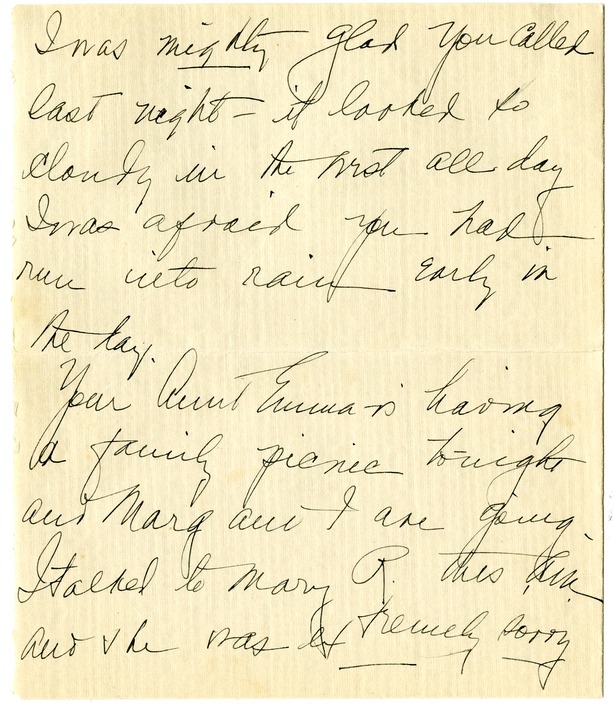 I was mighty glad you called
last night - it looked so
cloudy in the west all day
I was afraid you had
run into rain early in
the day.
Your Aunt Emma is having
a family picnic tonight
and Marg and I are going.
I talked to Mary R. this
and she was extremely sorry